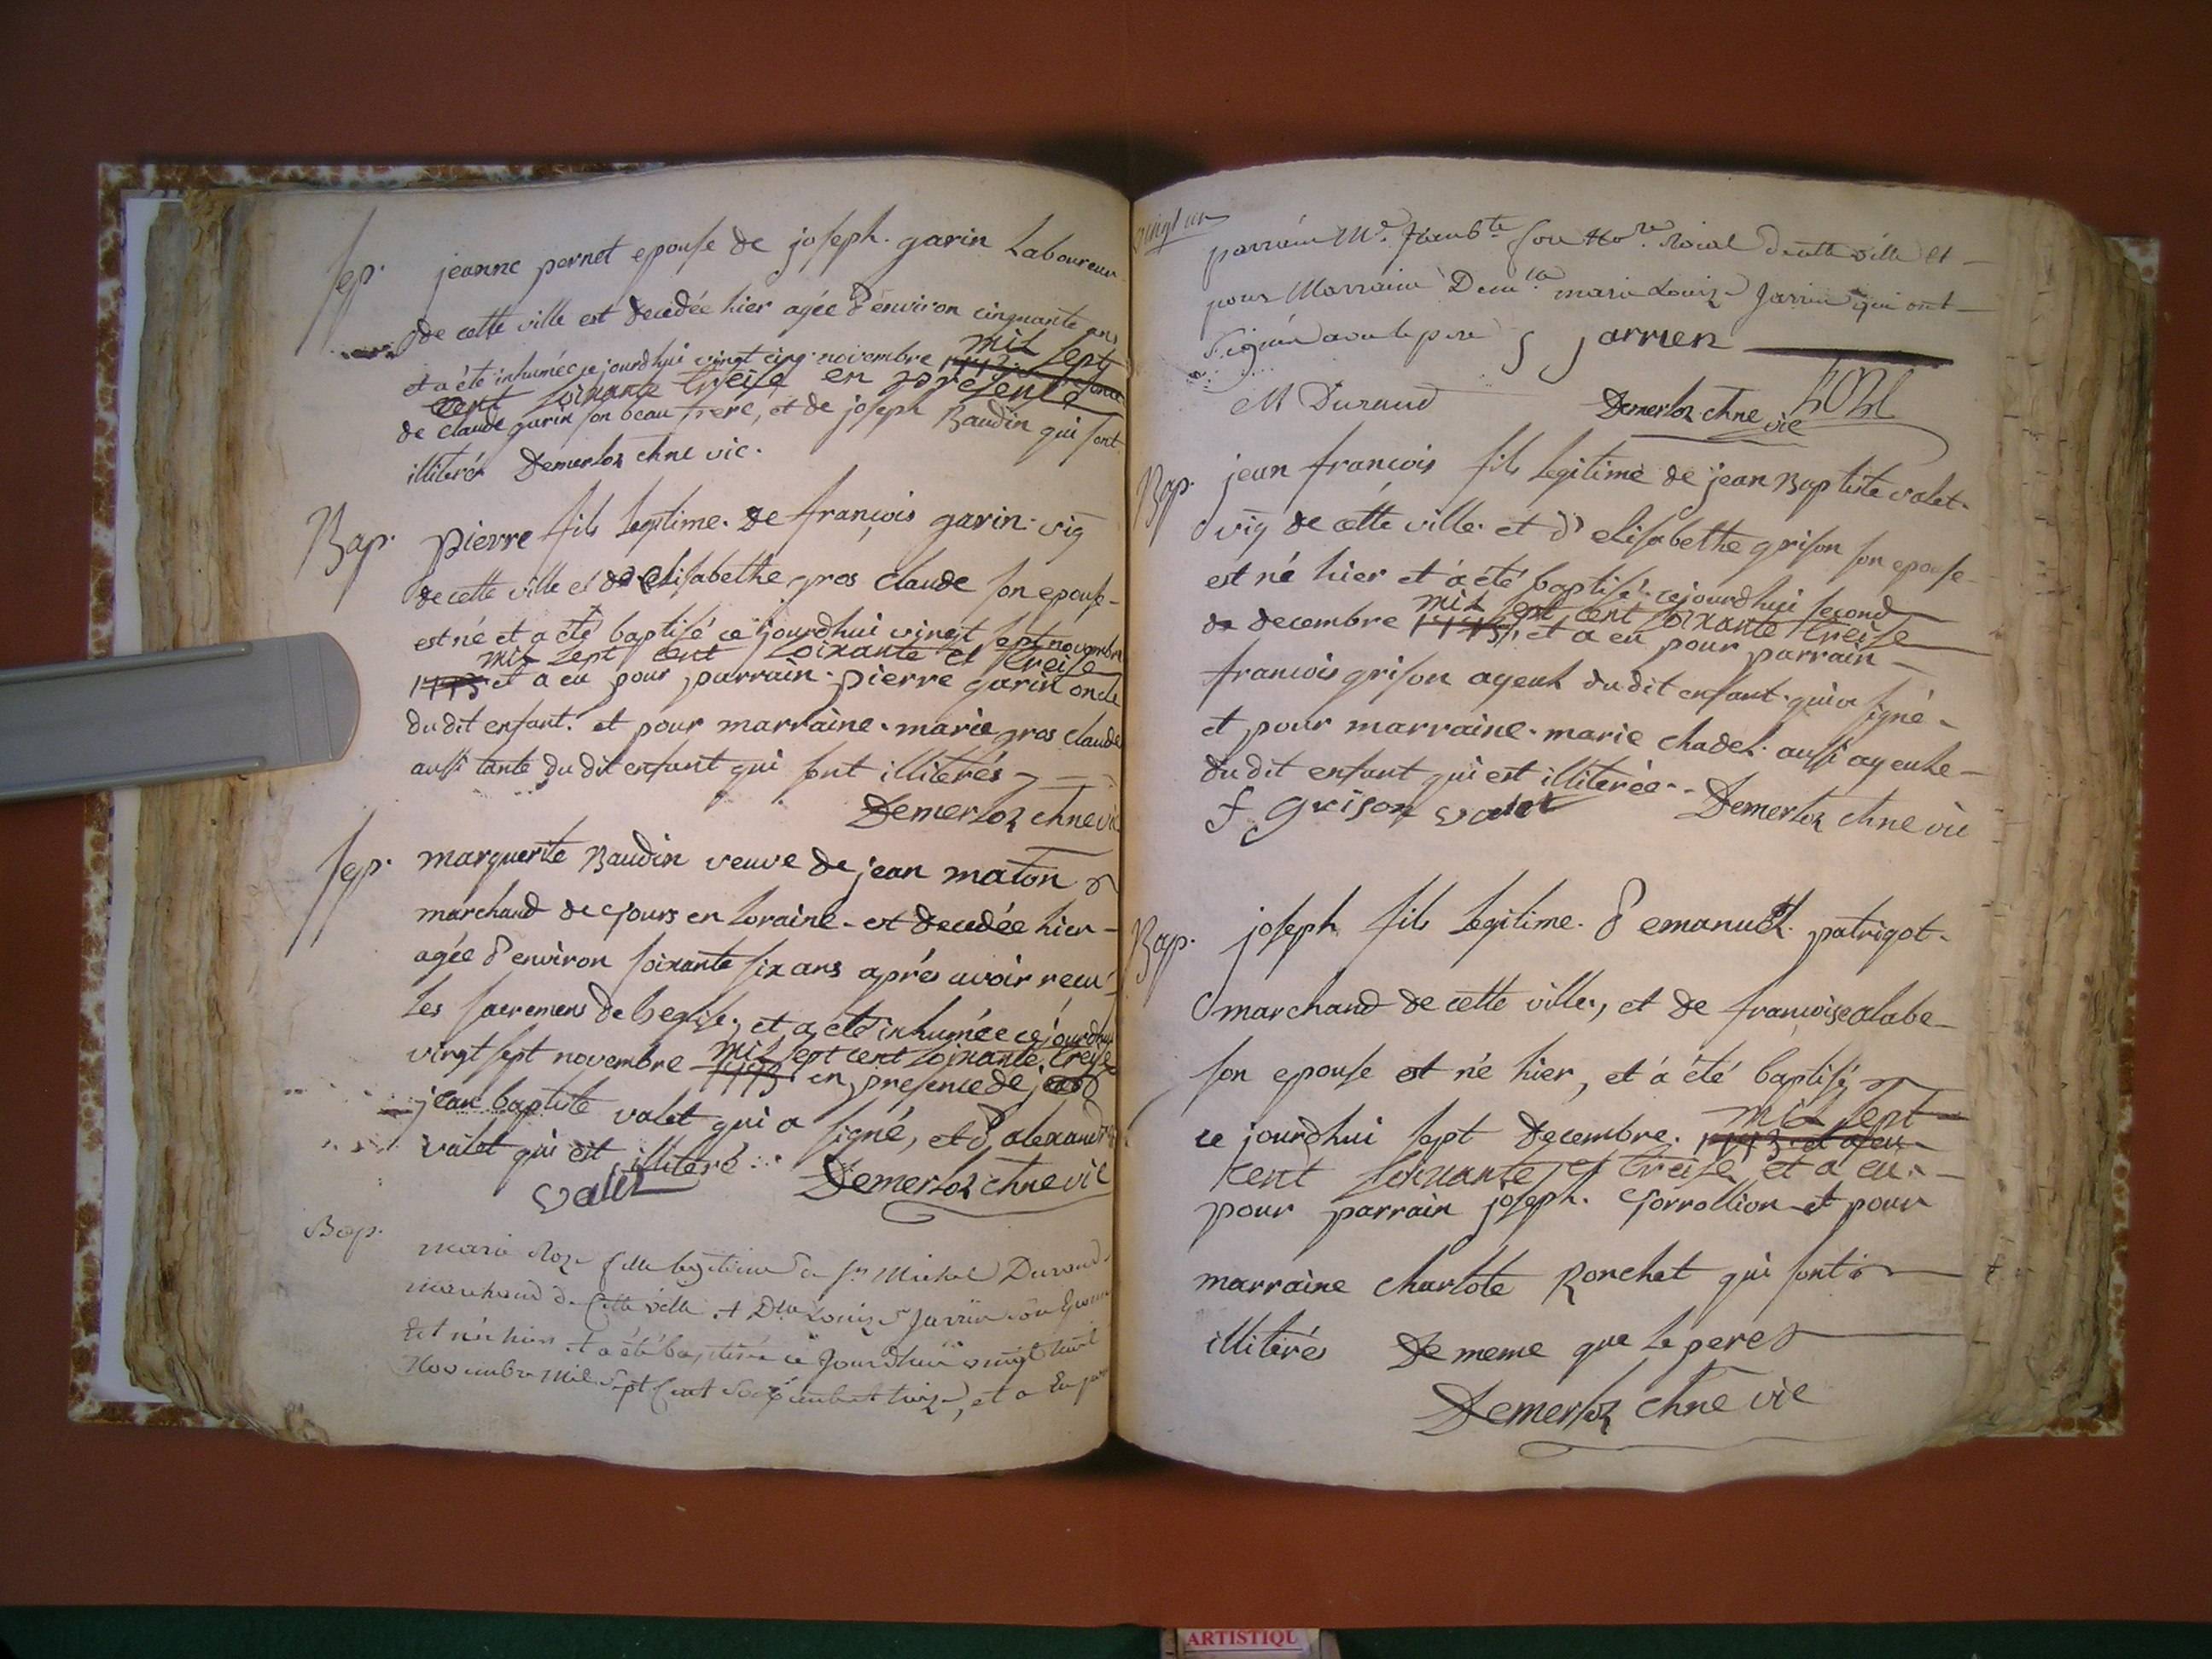 Sep. jeanne pernet epouse de joseph garin Laboureur
de cette ville est decedée hier agée d'environ cinquante ans
et a été inhumée ce jourdhui vingt cinq novembre mil sept
cent soixante treise en présence
de claude garin son beau frere, et de joseph Baudin qui sont
illiterés Demerloz chne vic.
Bap. pierre fils legitime de françois garin vig
de cette ville et de elisabethe gros claude son epouse
est né et a été baptisé ce jourdhui vingt sept novembre
mil sept cent soixante et treise
1773 et a eu pour parrain pierre garin oncle
du dit enfant et pour marraine marie gros claude
aussi tante du dit enfant qui sont illiterés
Demerloz chne vic
Sep. marguerite Baudin veuve de jean maton
marchand de en loraine est decedée hier
agée d'environ soixante six ans aprés avoir recu
les sacremens de leglise, et a été inhumée ce jourdhui
vingt sept novembre mil sept cent soixante treise
1773 en presence de
jean baptiste valet qui a signé, et d'alexandre
valet qui est illiteré
valet Demerloz chne vic
Bap. marie Roze fille legitime de Sr Michel Durand
marchand de cette ville et Dlle Louize Jarrin son Epouse
Est née hier et a été baptisée ce Jourdhui vingt huit
Novembre Mil Sept Cent Soixante et treize, et a Eu pour
vingt un
parrain Mr. Roial de cette ville et
pour Marraine Demlle marie Louize Jarrin qui ont
Signé avec le pere J jarrien
M Durand Demerloz chne vic
Bap. jean françois fils legitime de jean Baptiste valet
vig de cette ville et d'elisabethe grison son epouse
est né hier et a été baptisé cejourdhui second
de decembre mil sept cent soixante treise
1773, et a eu pour parrain
francois grison ayeul du dit enfant qui a signé
et pour marraine marie chadel aussi ayeule
du dit enfant qui est illiterée Demerloz chne vic
f grison valet
Bap. joseph fils legitime d'emanuel patrigot
marchand de cette ville, et de françoise alabe
son epouse est né hier, et a été baptisé
ce jourdhui sept decembre mil sept
1773 et a eu
cent soixante et treise et a eu
pour parrain joseph Gorrollion et pour
marraine charlote Rorchet qui sont
illiterés De meme que le pere
Demerloz chne vic
ARTISTIQU